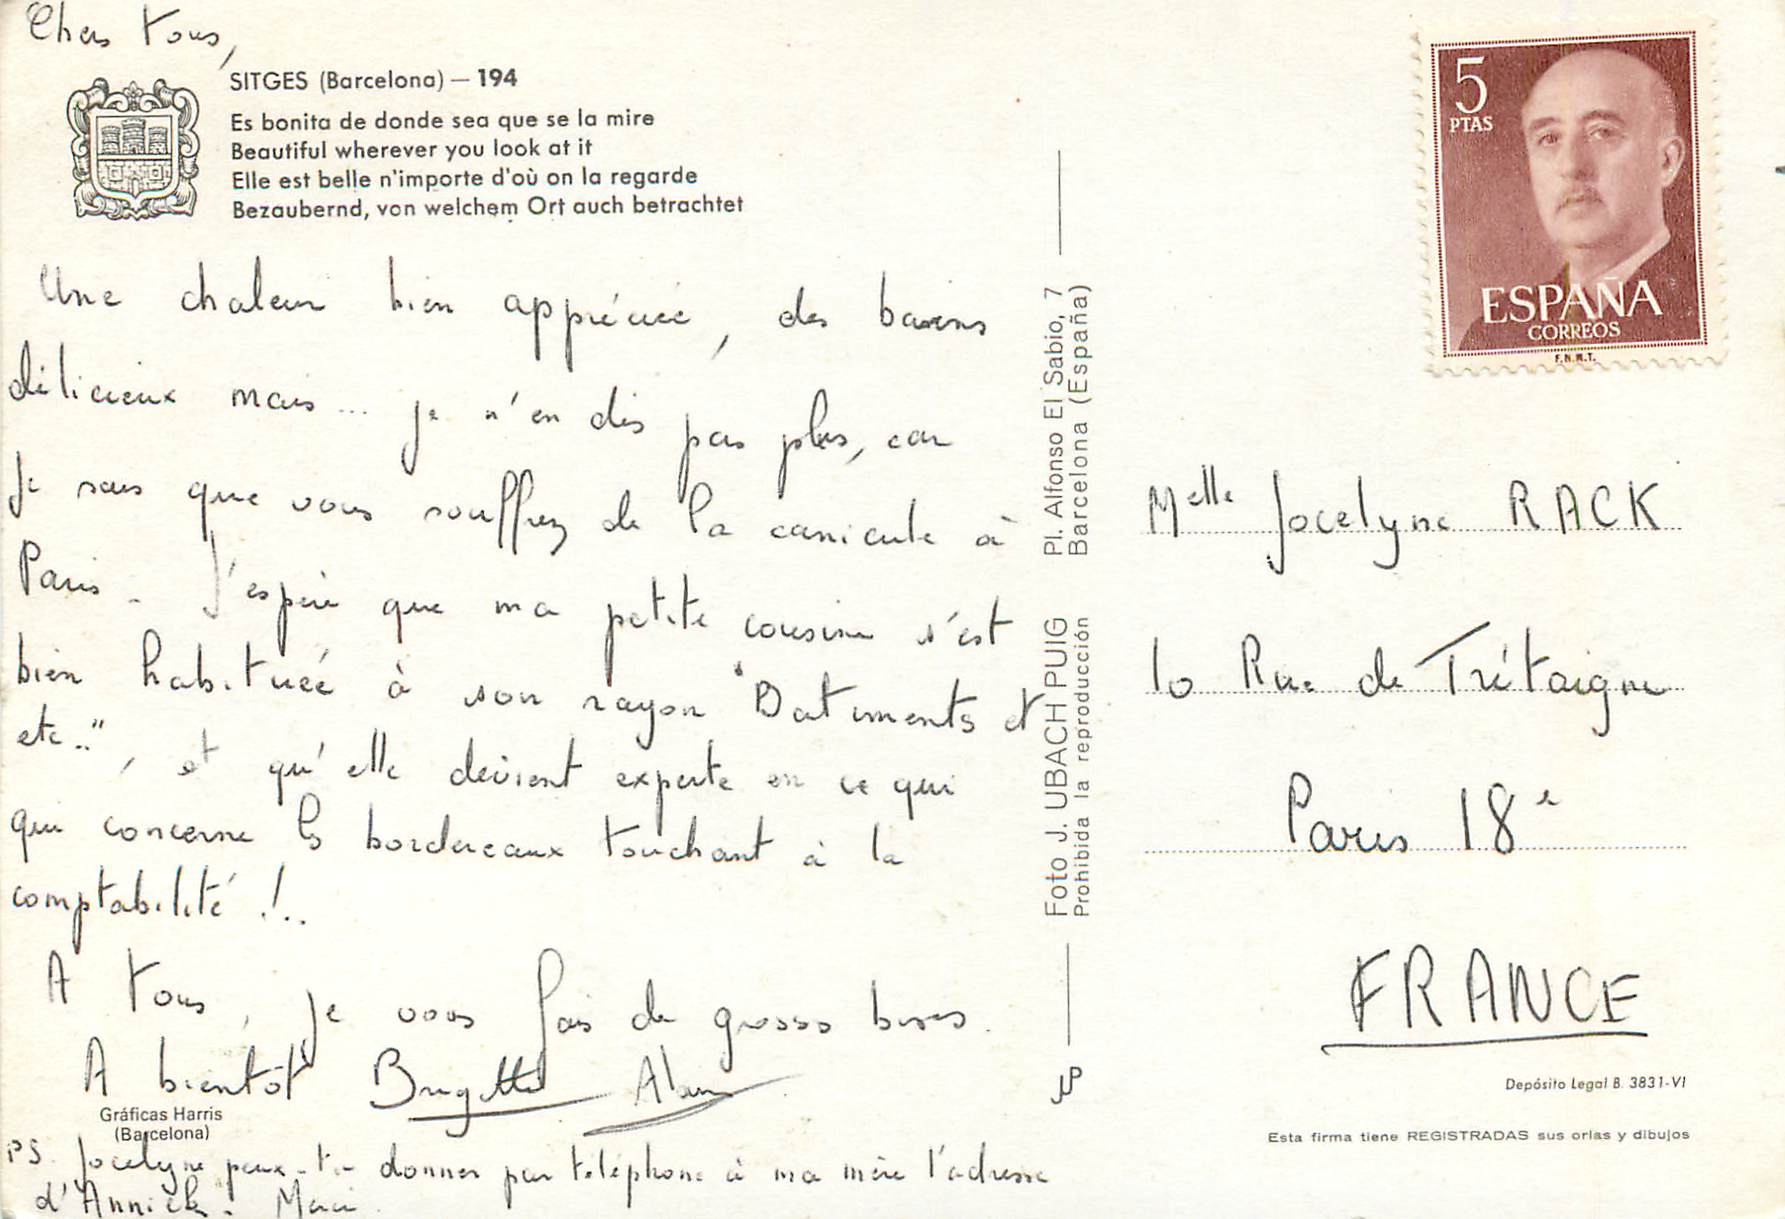 Chers tous,
SITGES (Barcelona) — 194
Es bonita de donde sea que se la mire
Beautiful wherever you look at it
Elle est belle n'importe d'où on la regarde
Bezaubernd, von welchem Ort auch betrachtet
Une chaleur bien appréciée, des bains
délicieux mais... je n'en dis pas plus, car
je sais que vous souffrez de la canicule à
Paris. J'espère que ma petite cousine s'est
bien habituée à son rayon "Batiments et
etc..", et qu'elle devient experte en ce qui
qui concerne les bordereaux touchant à la
comptabilité !..
A tous, je vous fais de grosses bises.
A bientôt Brigitte Alain
Gráficas Harris
(Barcelona)
PS. Jocelyne peux-tu donner par téléphone à ma mère l'adresse
d'Annick. Merci.
Foto J. UBACH PUIG Pl. Alfonso El Sabio, 7
Prohibida la reproducción Barcelona (España)
JUP
5
PTAS
ESPAÑA
CORREOS
F.N.M.T.
Melle Jocelyne RACK
10 Rue de Trétaigne
Paris 18e
FRANCE
Depósito Legal B. 3831-VI
Esta firma tiene REGISTRADAS sus orlas y dibujos